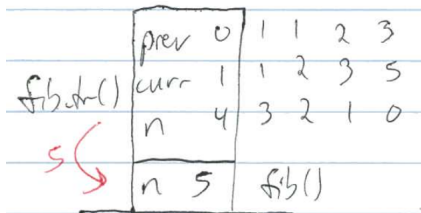 prev 0 1 1 2 3
curr 1 1 2 3 5
n 4 3 2 1 0
5
n 5 fib()